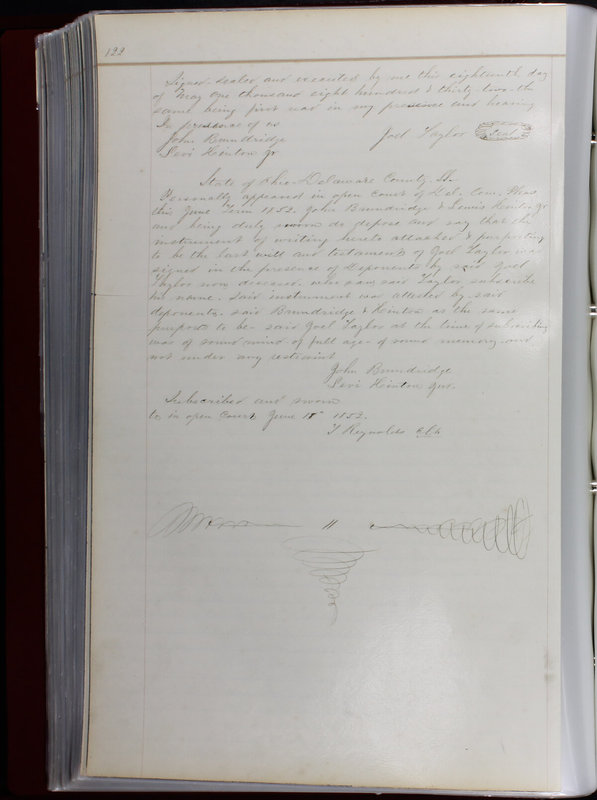 122
Signed sealed and executed by me this eighteenth day
of May one thousand eight hundred & thirty-two the
same being first read in my presence and hearing
In presence of us
John Brundridge Joel Taylor Seal
Levi Hinton Jr
State of Ohio Delaware County, Ss
Personally appeared in open Court of Del. Com. Pleas
this June Term 1852. John Brundridge & Lewis Hinton Jr
and being duly sworn do depose and say that the
instrument of writing hereto attached & purporting
to be the last will and testament of Joel Taylor was
signed in the presence of Deponents by said Joel
Taylor now deceased. who saw said Taylor subscribe
his name. Said instrument was attested by said
deponents. said Brundridge & Hinton as the same
purports to be - said Joel Taylor at the time of subscribing
was of sound mind of full age of sound memory and
not under any restraint
John Brundridge
Levi Hinton Jur.
Subscribed and sworn
to in open Court June 15 1852.
T Reynolds Clk